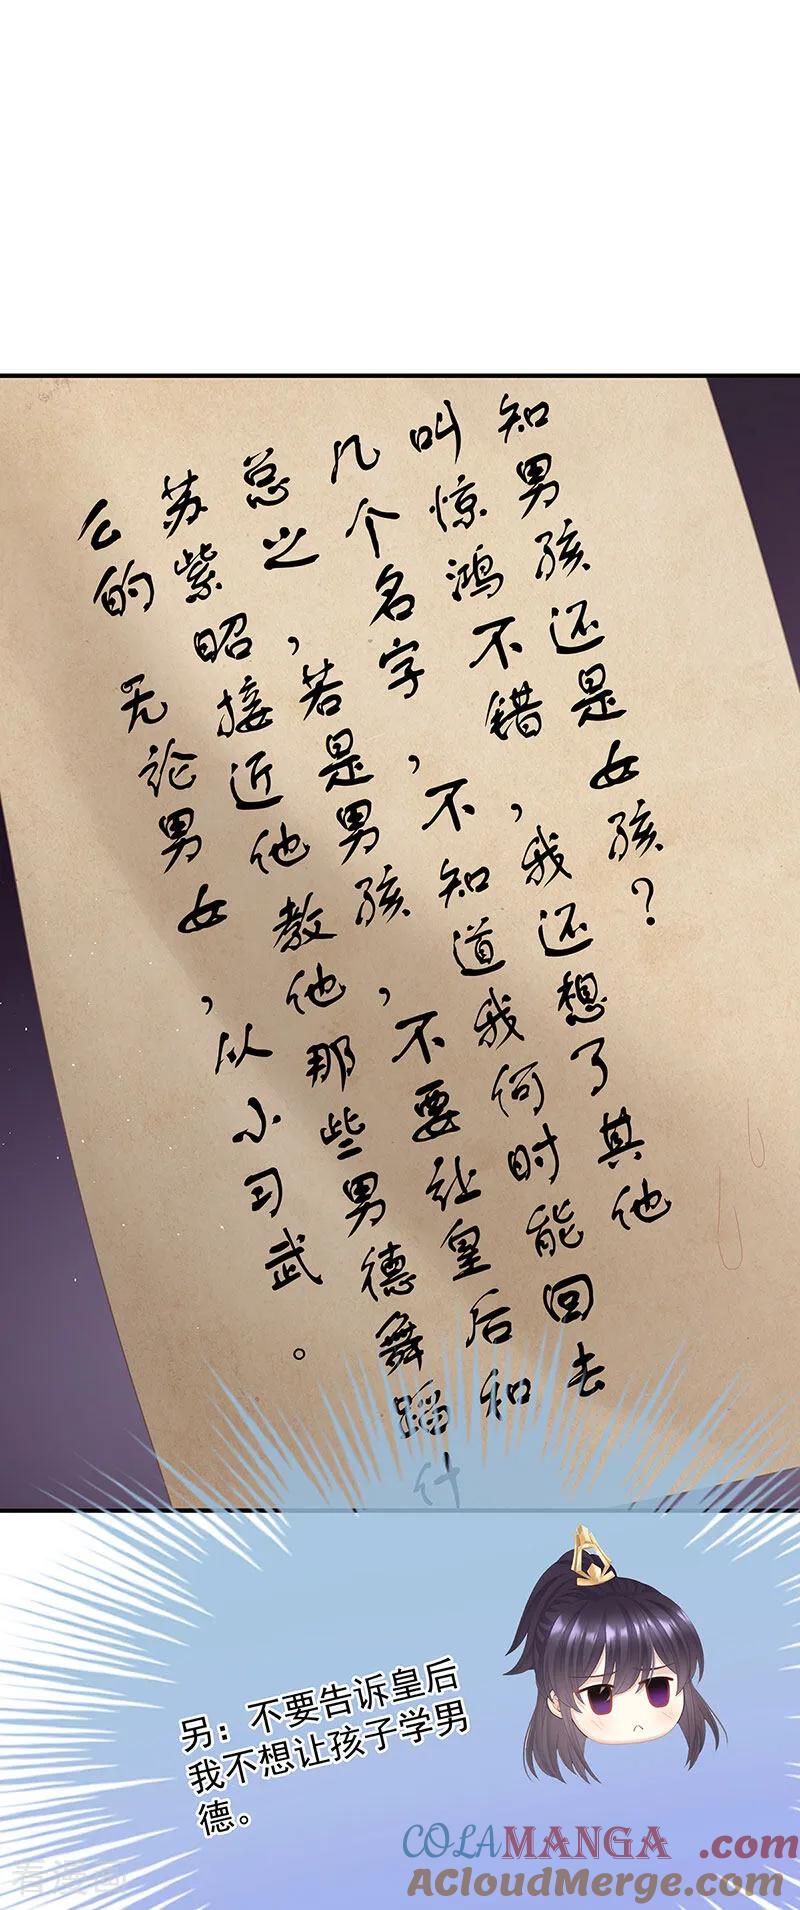 知男孩还是女孩?
叫惊鸿不错,我还想了其他
几个名字,不知道我何时能回去
总之,若是男孩,不要让皇后和
苏紫昭接近他教他那些男德舞蹈什
么的 无论男女,从小习武。
另：不要告诉皇后
我不想让孩子学男
德。
看漫画
COLAMANGA.com
ACloudMerge.com